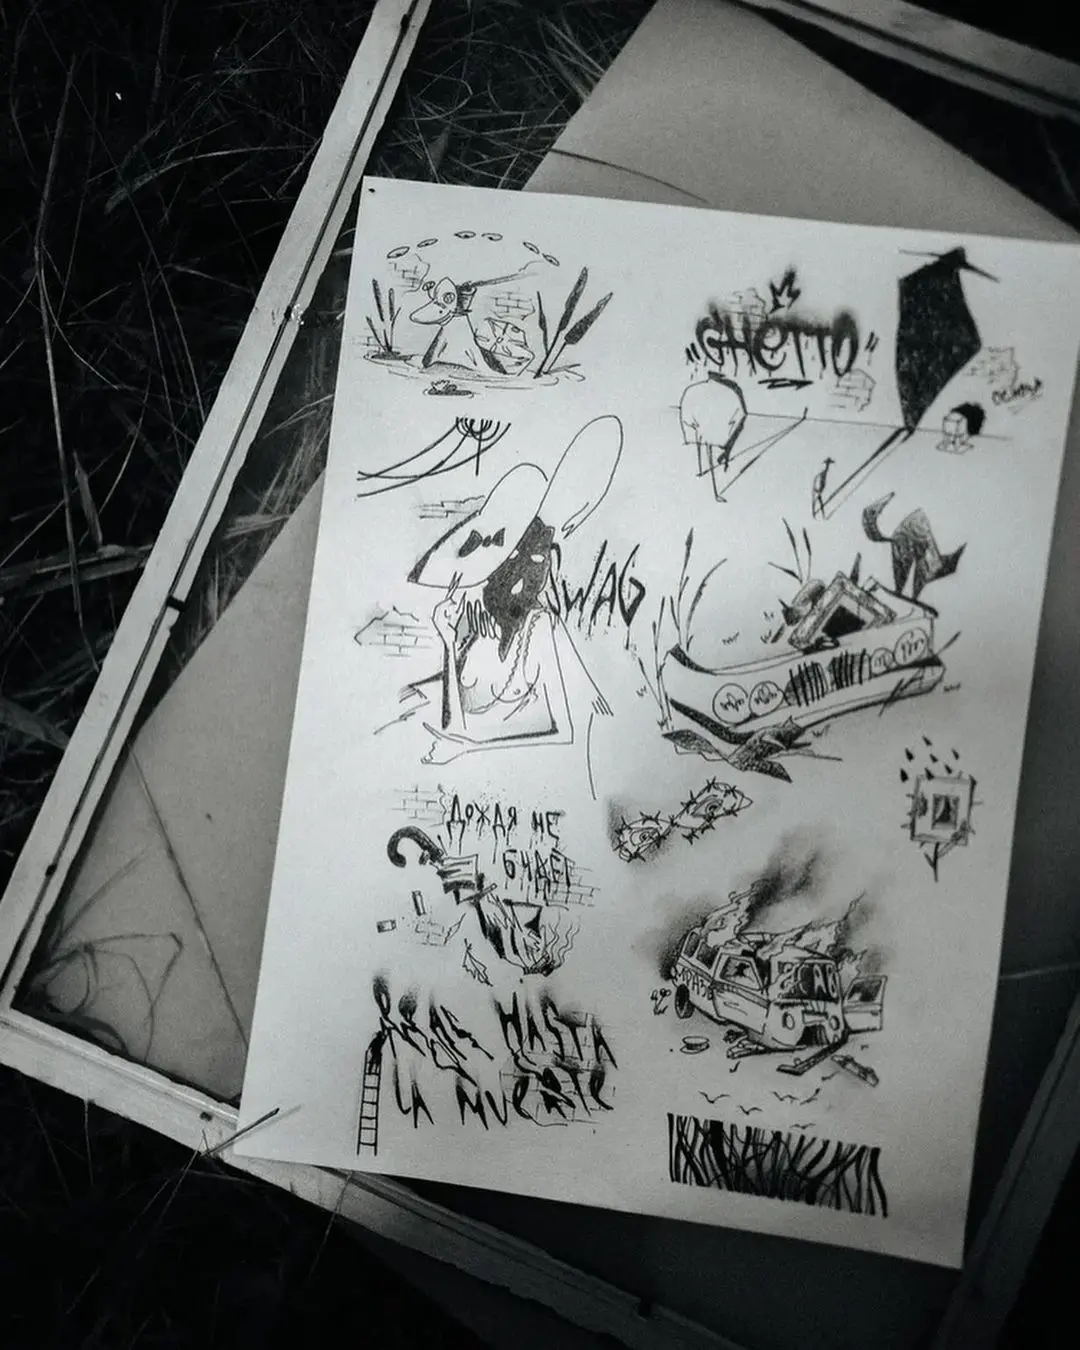 "GHETTO"
SWAG
ДОЖДЯ НЕ
БУДЕТ
HASTA
LA MUERTE